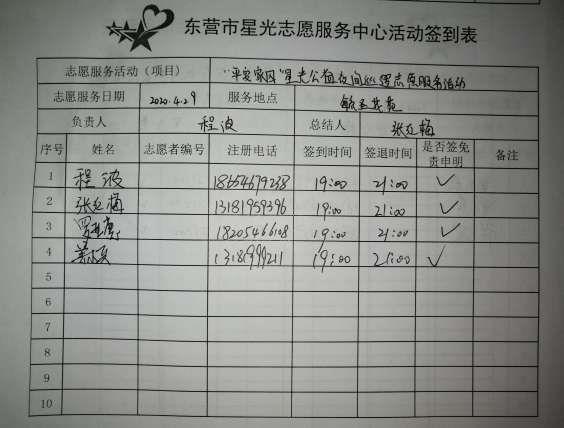 东营市星光志愿服务中心活动签到表
志愿服务活动（项目） "平安家园"星光公益夜间巡逻志愿服务活动
志愿服务日期 2020.4.29 服务地点
负责人 程波 总结人 张红梅
序号 姓名 志愿者编号 注册电话 签到时间 签退时间 是否签免责申明 备注
1 程波 18654679238 19:00 21:00 ✓
2 张红梅 13181959396 19:00 21:00 ✓
3 18205466108 19:00 21:00 ✓
4 13181999211 19:00 21:00 ✓
5
6
7
8
9
10